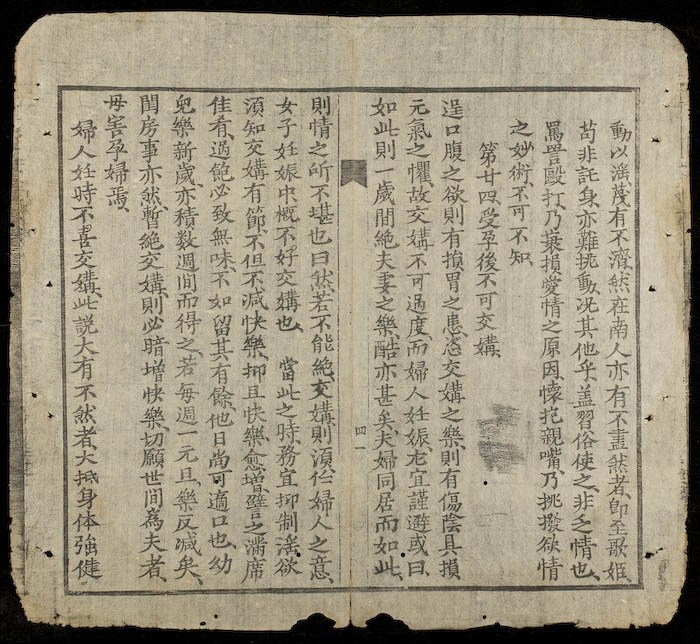 動以滛蔑有不濟、然在南人亦有不盡然者、卽至歌姬、
苟非託身、亦難挑動、况其他乎、盖習俗使之、非乏情也、
罵詈毆打、乃蓑損愛情之原因、懷抱親嘴、乃挑撥欲情
之妙術、不可不知
第廿四、受孕後不可交媾、
逞口腹之欲、則有損胃之患、恣交媾之樂、則有傷陰具損
元氣之懼、故交媾不可過度、而婦人妊娠、尤宜謹避、或曰、
如此、則一歲間絕夫妻之樂、酷亦甚矣、夫婦同居而如此、
四一
則情之所不堪也、曰然、若不能絕交媾、則須任婦人之意、
女子妊娠中、概不好交媾也、當此之時、務宜抑制滛欲
須知交媾有節、不但不减快樂、抑且快樂愈增、譬之滿席
佳肴、過飽必致無味、不如留其有餘、他日尙可適口也、幼
兒樂新歲、亦積数週間而得之、若每週一元旦、樂反减矣、
閨房事亦然、暫絕交媾、則必暗增快樂、切願世間爲夫者、
毋害孕婦焉、
婦人妊時不喜交媾、此說大有不然者、大抵身体強健